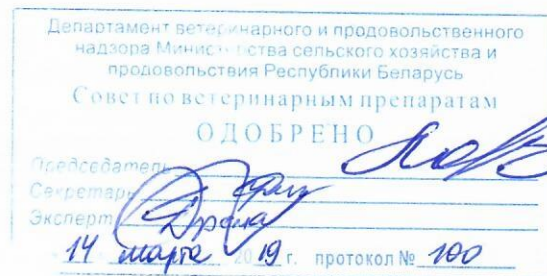 Департамент ветеринарного и продовольственного
надзора Министерства сельского хозяйства и
продовольствия Республики Беларусь
Совет по ветеринарным препаратам
ОДОБРЕНО
Председатель
Секретарь
Эксперт
14 марта 2019 г. протокол № 100